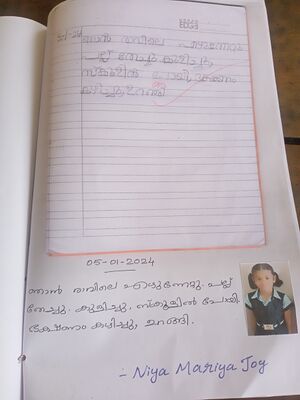 ഞാൻ രാവിലെ
പല്ല് തേച്ചു കുളിച്ചു,
സ്കൂളിൽ പോയി,
കഴിച്ചു, ഉറങ്ങി
05-01-2024
ഞാൻ രാവിലെ എഴുന്നേറ്റു. പല്ല്
തേച്ചു. കുളിച്ചു, സ്കൂളിൽ പോയി.
ഭക്ഷണം കഴിച്ചു, ഉറങ്ങി.
- Niya Mariya Joy